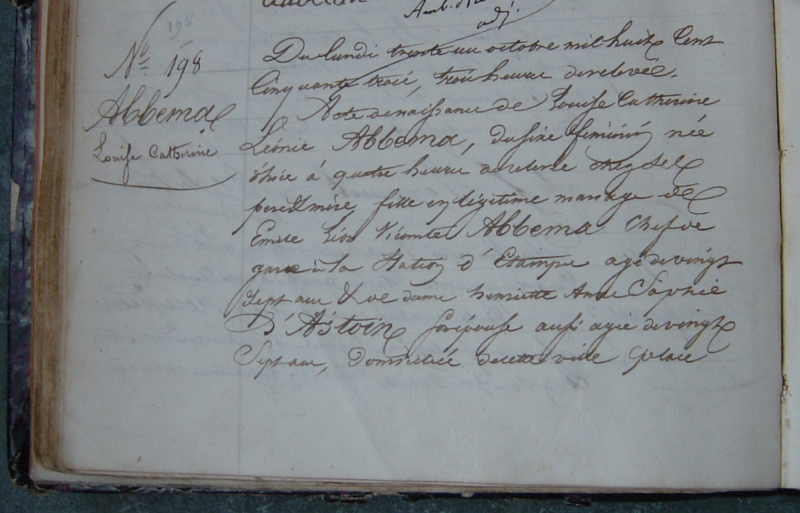 198
Amb.
adj.
Nº 198
Abbema
Louise Catherine
Du lundi trente un octobre mil huit Cent
Cinquante trois, trois heures de relevée.
Acte de naissance de Louise Catherine
Léonie Abbema, du sexe féminin née
d'hier à quatre heures de relevée chez ses
père & mère, fille en légitime mariage de
Emile Léon Vicomte Abbema Chef de
gare à la Station d'Etampes agé de vingt
sept ans & de dame henriette Anne Sophie
D'Astoin son épouse aussi agée de vingt
Sept ans, domiciliés de cette ville place